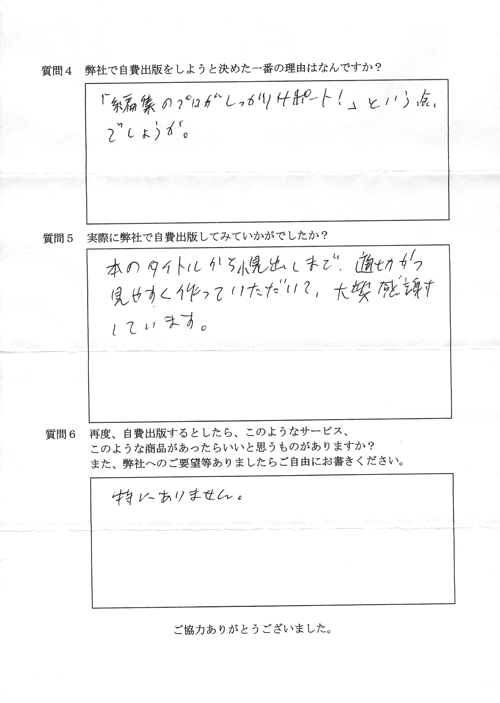 質問４　弊社で自費出版をしようと決めた一番の理由はなんですか？
「編集のプロがしっかりサポート！」という点、
でしょうか。
質問５　実際に弊社で自費出版してみていかがでしたか？
本のタイトルから小見出しまで、適切かつ
見やすく作っていただいて、大変感謝
しています。
質問６　再度、自費出版するとしたら、このようなサービス、
このような商品があったらいいと思うものがありますか？
また、弊社へのご要望等ありましたらご自由にお書きください。
特にありません。
ご協力ありがとうございました。